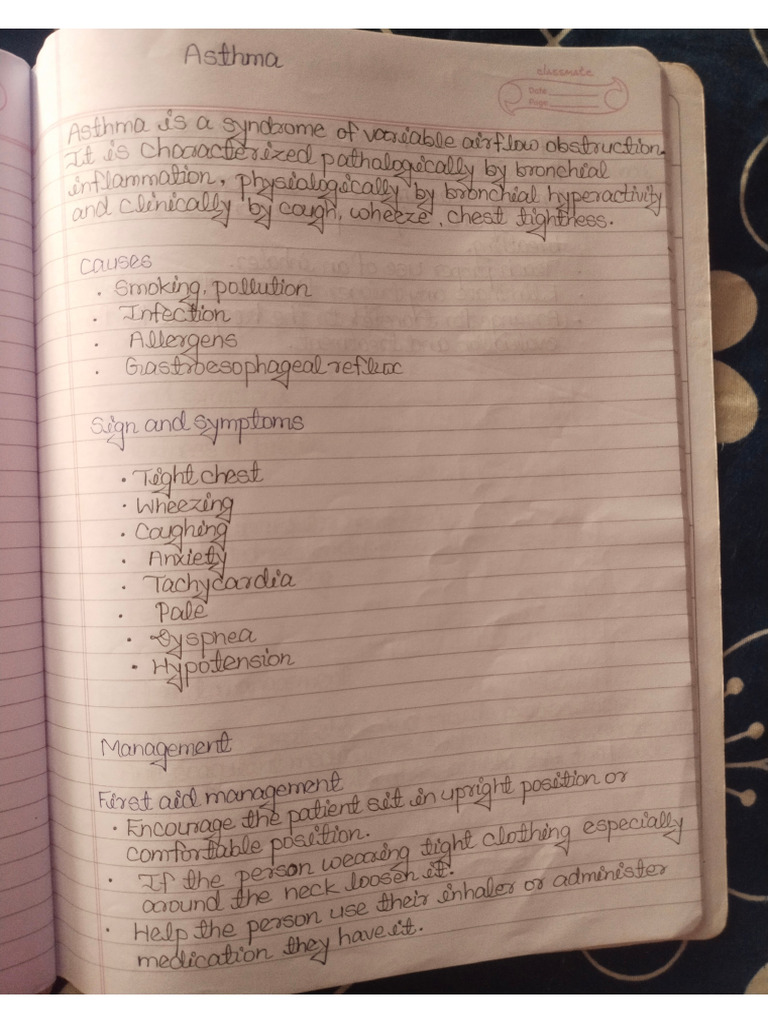 Asthma
classmate
Date
Page
Asthma is a syndrome of variable airflow obstruction.
It is characterized pathalogically by bronchial
inflammation, physialogically by bronchial hyperactivity
and clinically by cough, wheeze, chest tightness.
Causes
• Smoking, pollution
• Infection
• Allergens
• Gastroesophageal reflux
Sign and symptoms
• Tight chest
• Wheezing
• Coughing
• Anxiety
• Tachycardia
• Pale
• Dyspnea
• Hypotension
Management
First aid management
• Encourage the patient sit in upright position or
comfortable position.
• If the person wearing tight clothing especially
around the neck loosen it.
• Help the person use their inhaler or administer
medication they have it.